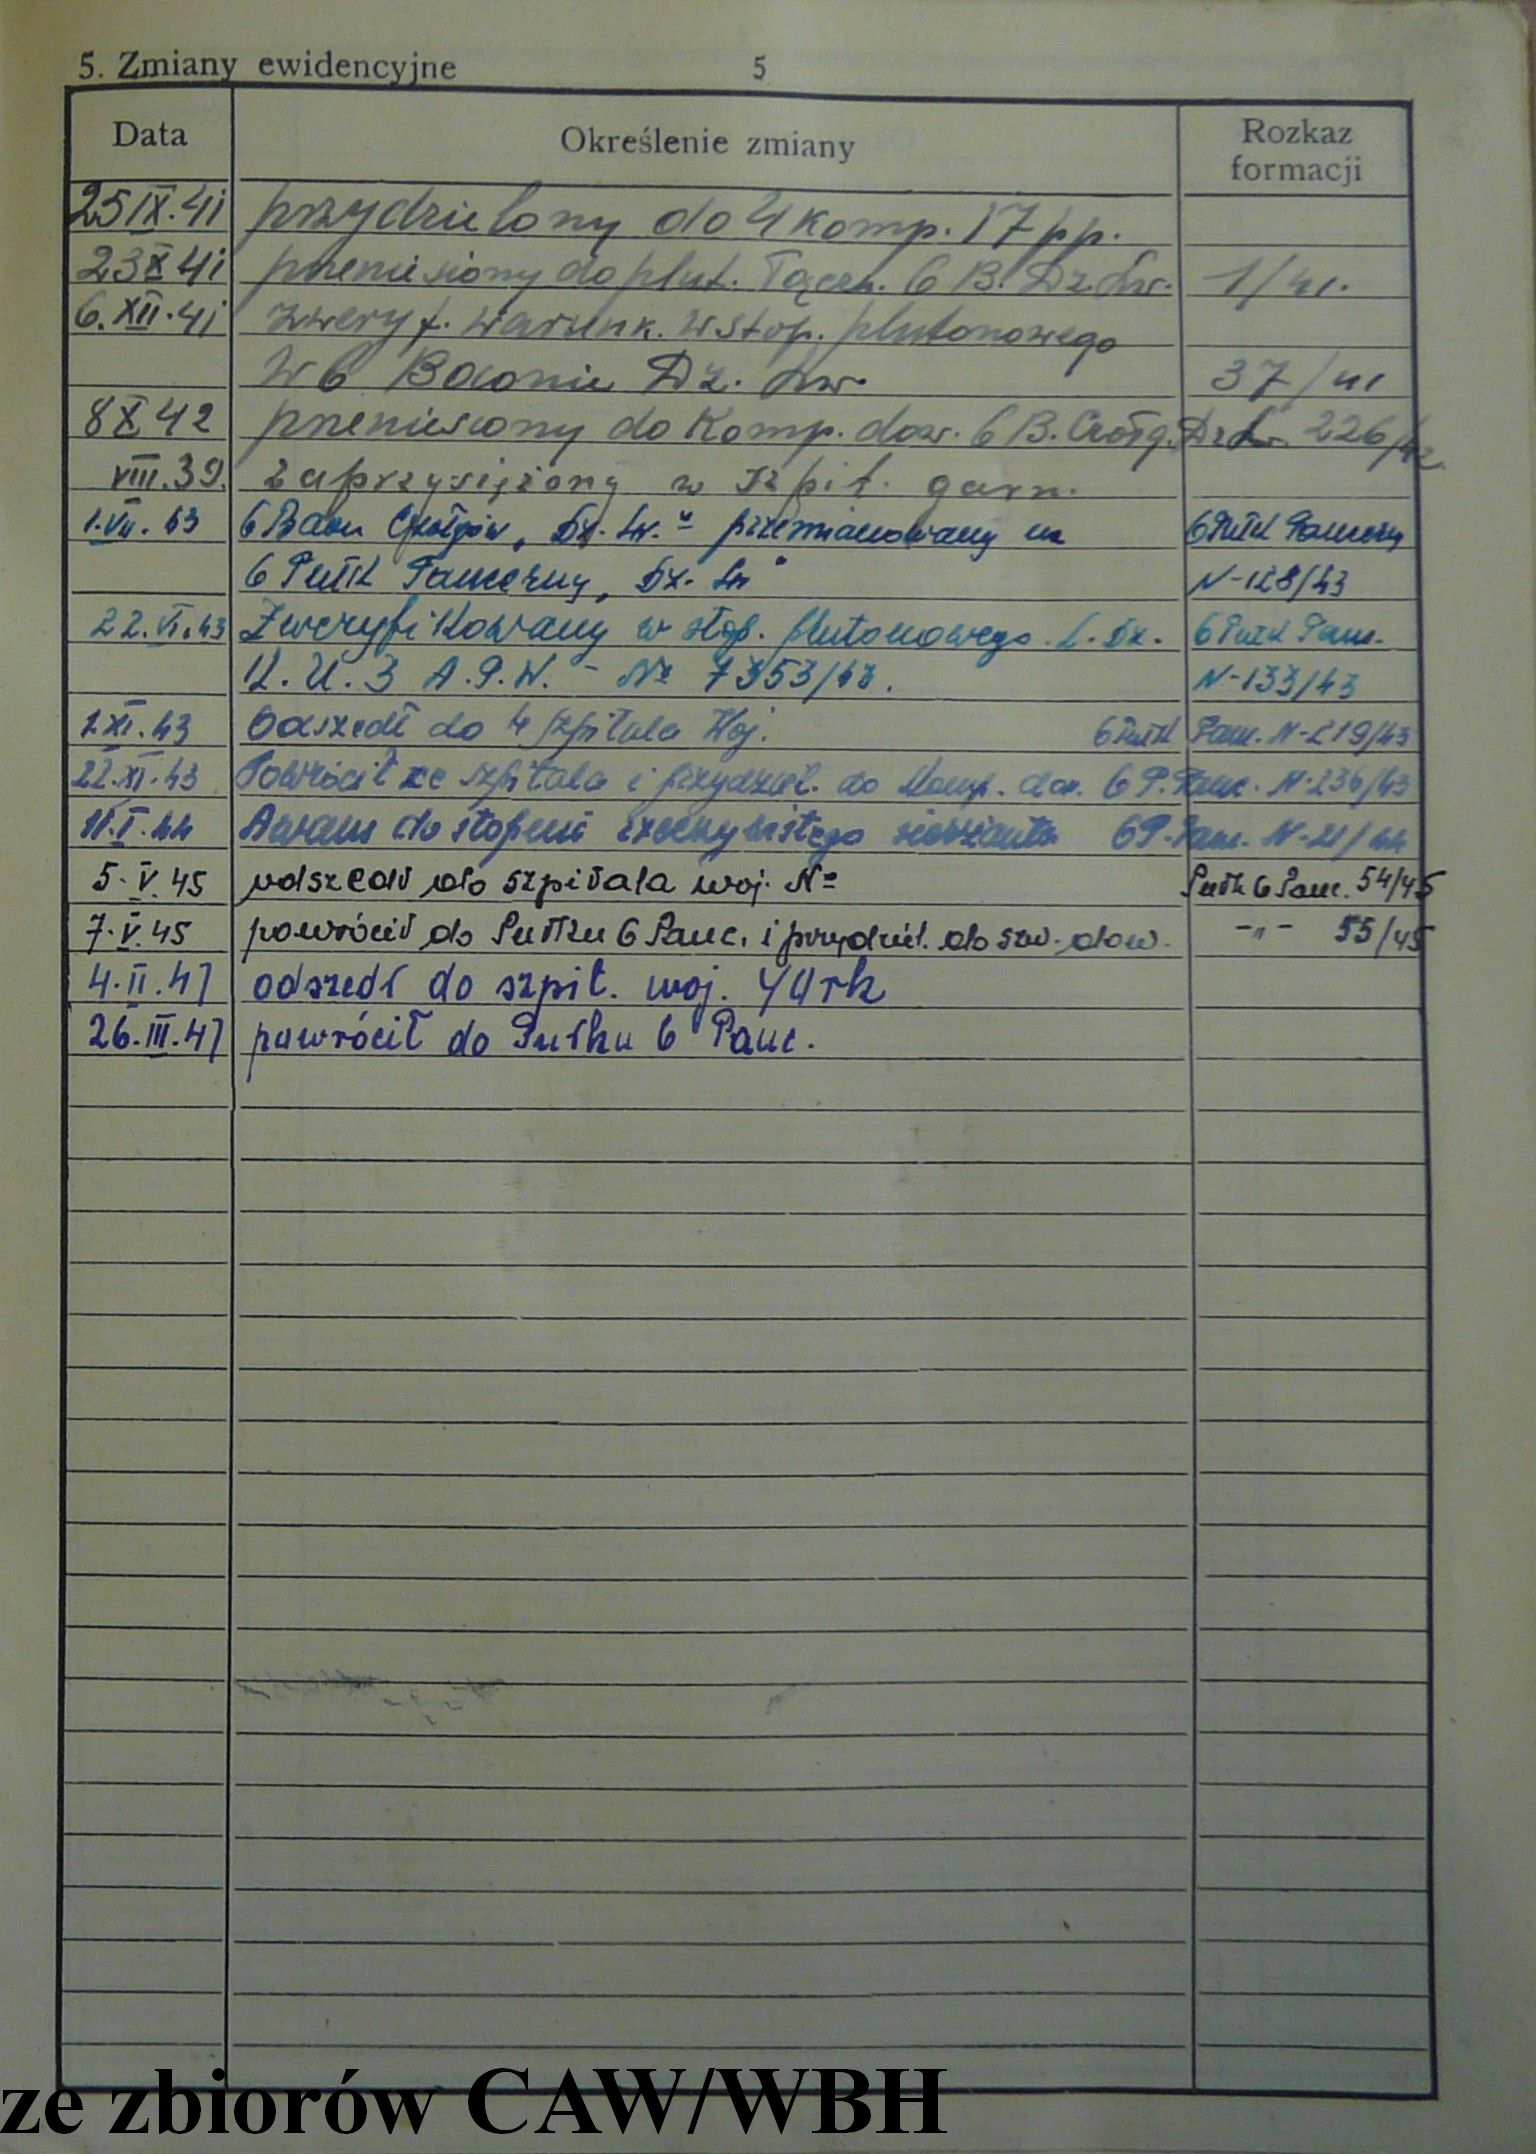 5. Zmiany ewidencyjne 5
Data Określenie zmiany Rozkaz formacji
25 IX. 41 przydzielony do 4 komp. 17 pp.
23 X 41 przeniesiony do plut. Łączn. 6 B. Dz. Lw. 1/41.
6. XII. 41 zweryf. warunk. w stop. plutonowego
w 6 Baonie Dz. Lw. 37/41
8 X 42 przeniesiony do Komp. dow. 6 B. Czołg. Dz. Lw. 226/42
VIII. 39. zaprzysiężony w Szpit. garn.
1. VII. 43 6 Baon Czołgów „Dz. Lw." przemianowany na 6 Pułk Pancerny
6 Pułk Pancerny „Dz. Lw" N-128/43
22. VI. 43 Zweryfikowany w stop. plutonowego L. Dz. 6 Pułk Panc.
A.P.W. - Nr 7353/43. N-133/43
XI. 43 Odszedł do 4 Szpitala Woj. 6 Pułk Panc. N-219/43
22. XI. 43 Powrócił ze szpitala i przydziel. do Komp. dow. 6 P. Panc. N-236/43
11. I. 44 Awans do stopnia rzeczywistego sierżanta 6 P. Panc. N-21/44
5. V. 45 odszedł do szpitala woj. No Pułk 6 Panc. 54/45
7. V. 45 powrócił do Pułku 6 Panc. i przydziel. do szw. dow. -„- 55/45
4. II. 47 odszedł do szpit. woj. York
26. III. 47 powrócił do Pułku 6 Panc.
ze zbiorów CAW/WBH